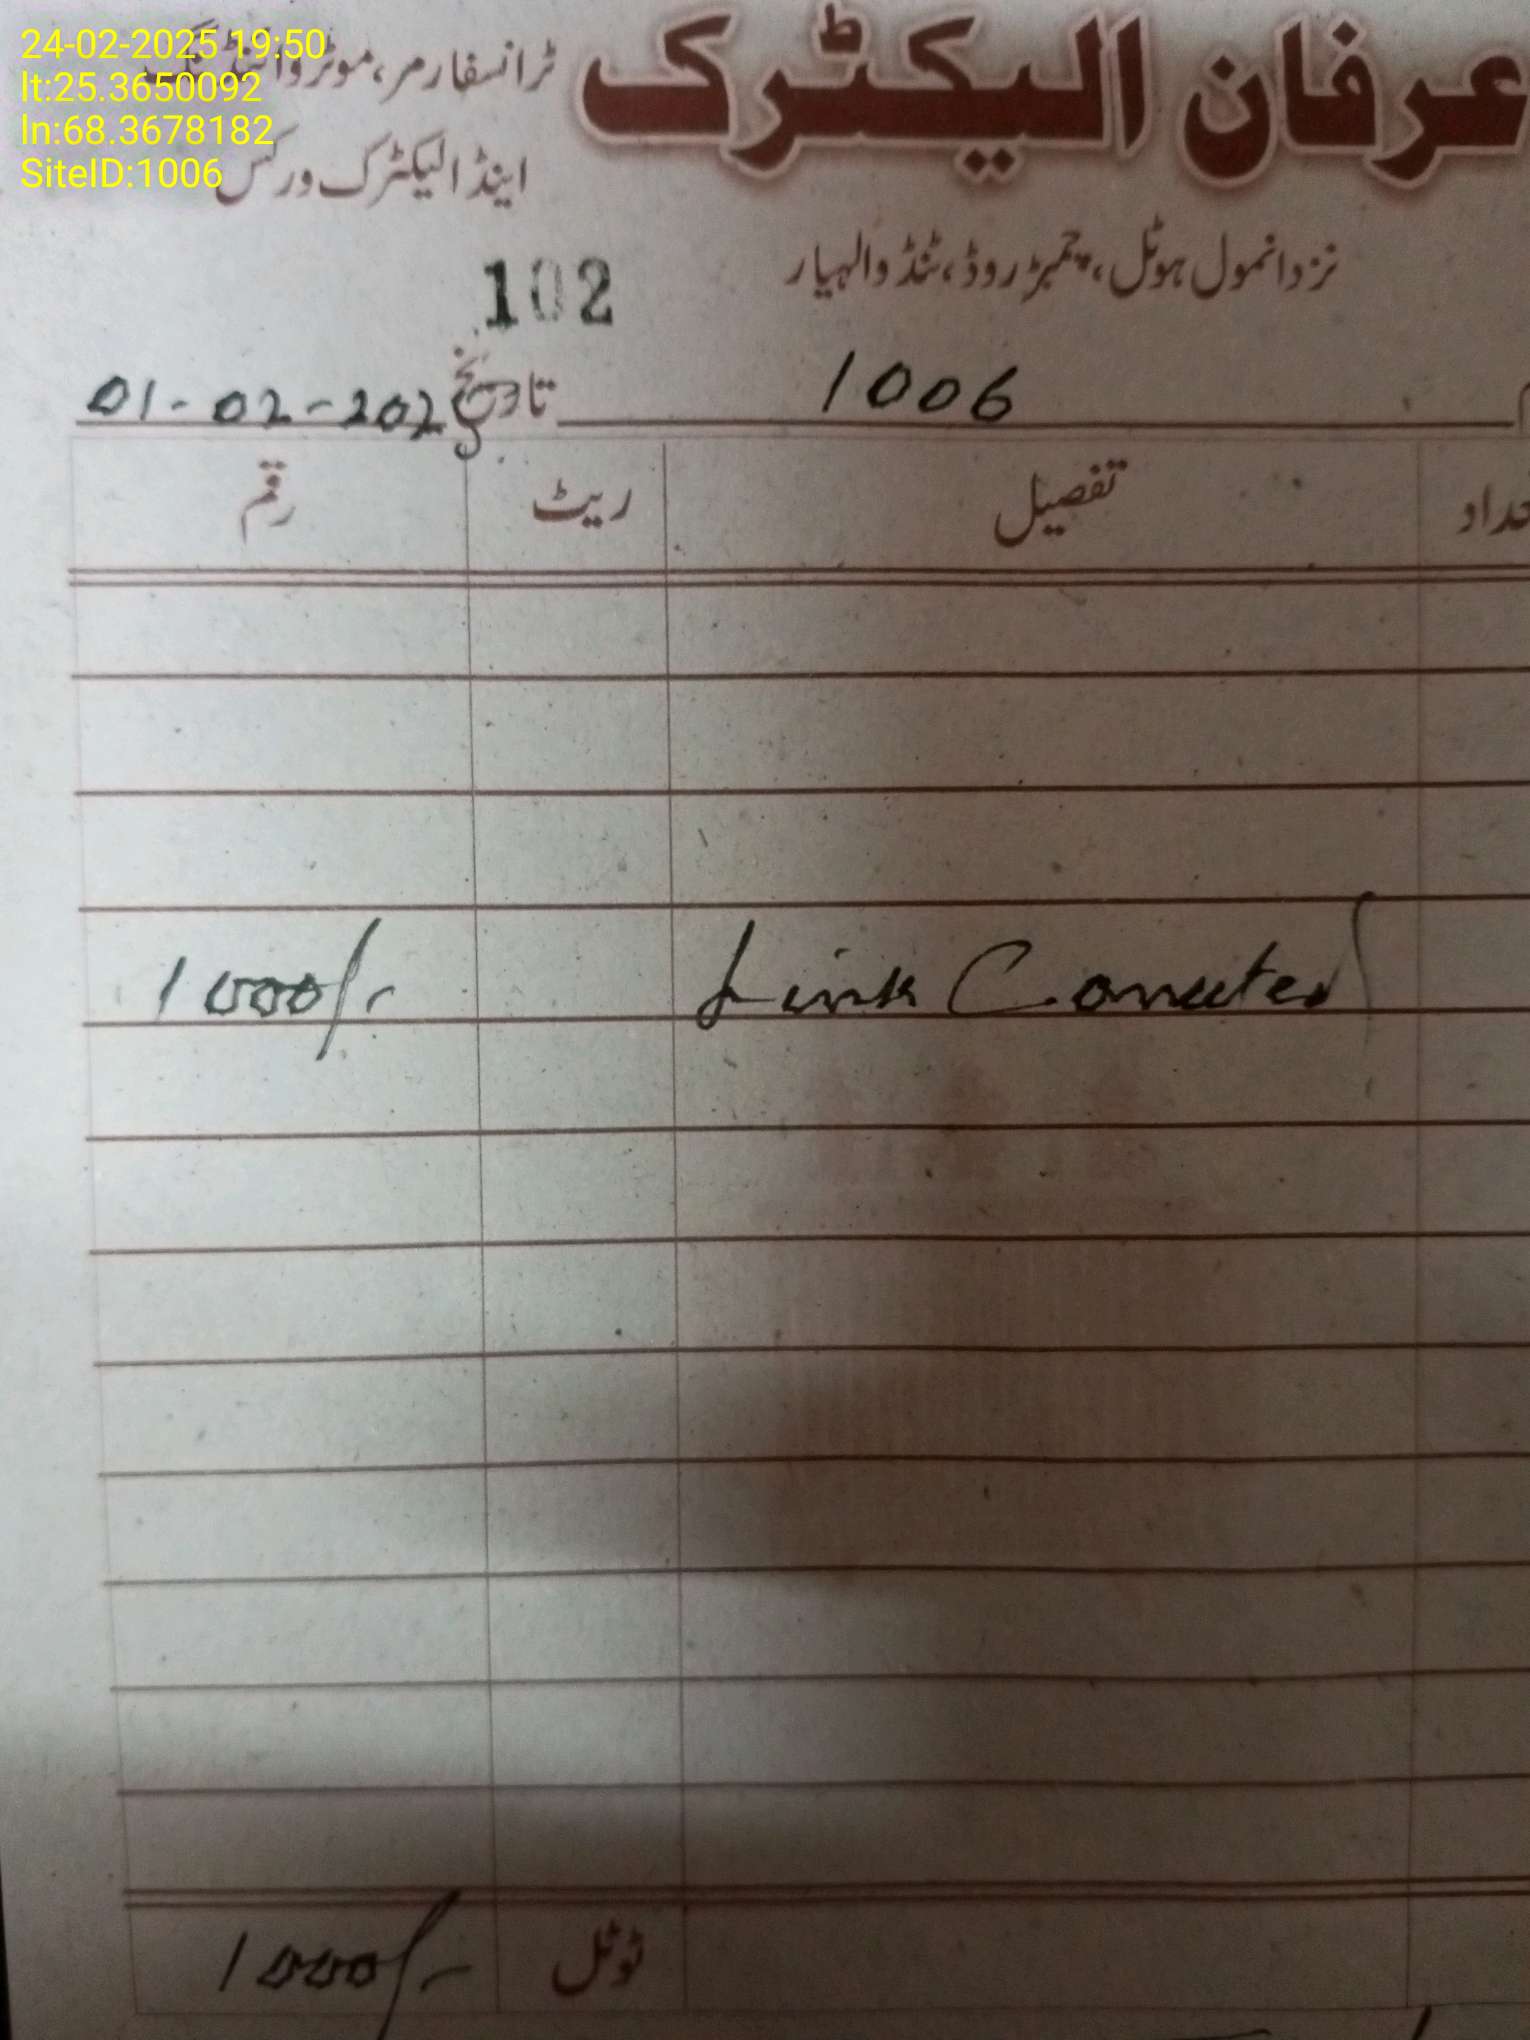 24-02-2025 19:50
lt:25.3650092
ln:68.3678182
SiteID:1006
عرفان الیکٹرک
ٹرانسفارمر، موٹر وائنڈنگ
اینڈ الیکٹرک ورکس
نزد انمول ہوٹل، چمبڑ روڈ، ٹنڈوالہیار
102
1006
تاریخ 01-02-2025
تفصیل ریٹ رقم
Link Conected 1000/-
ٹوٹل 1000/-